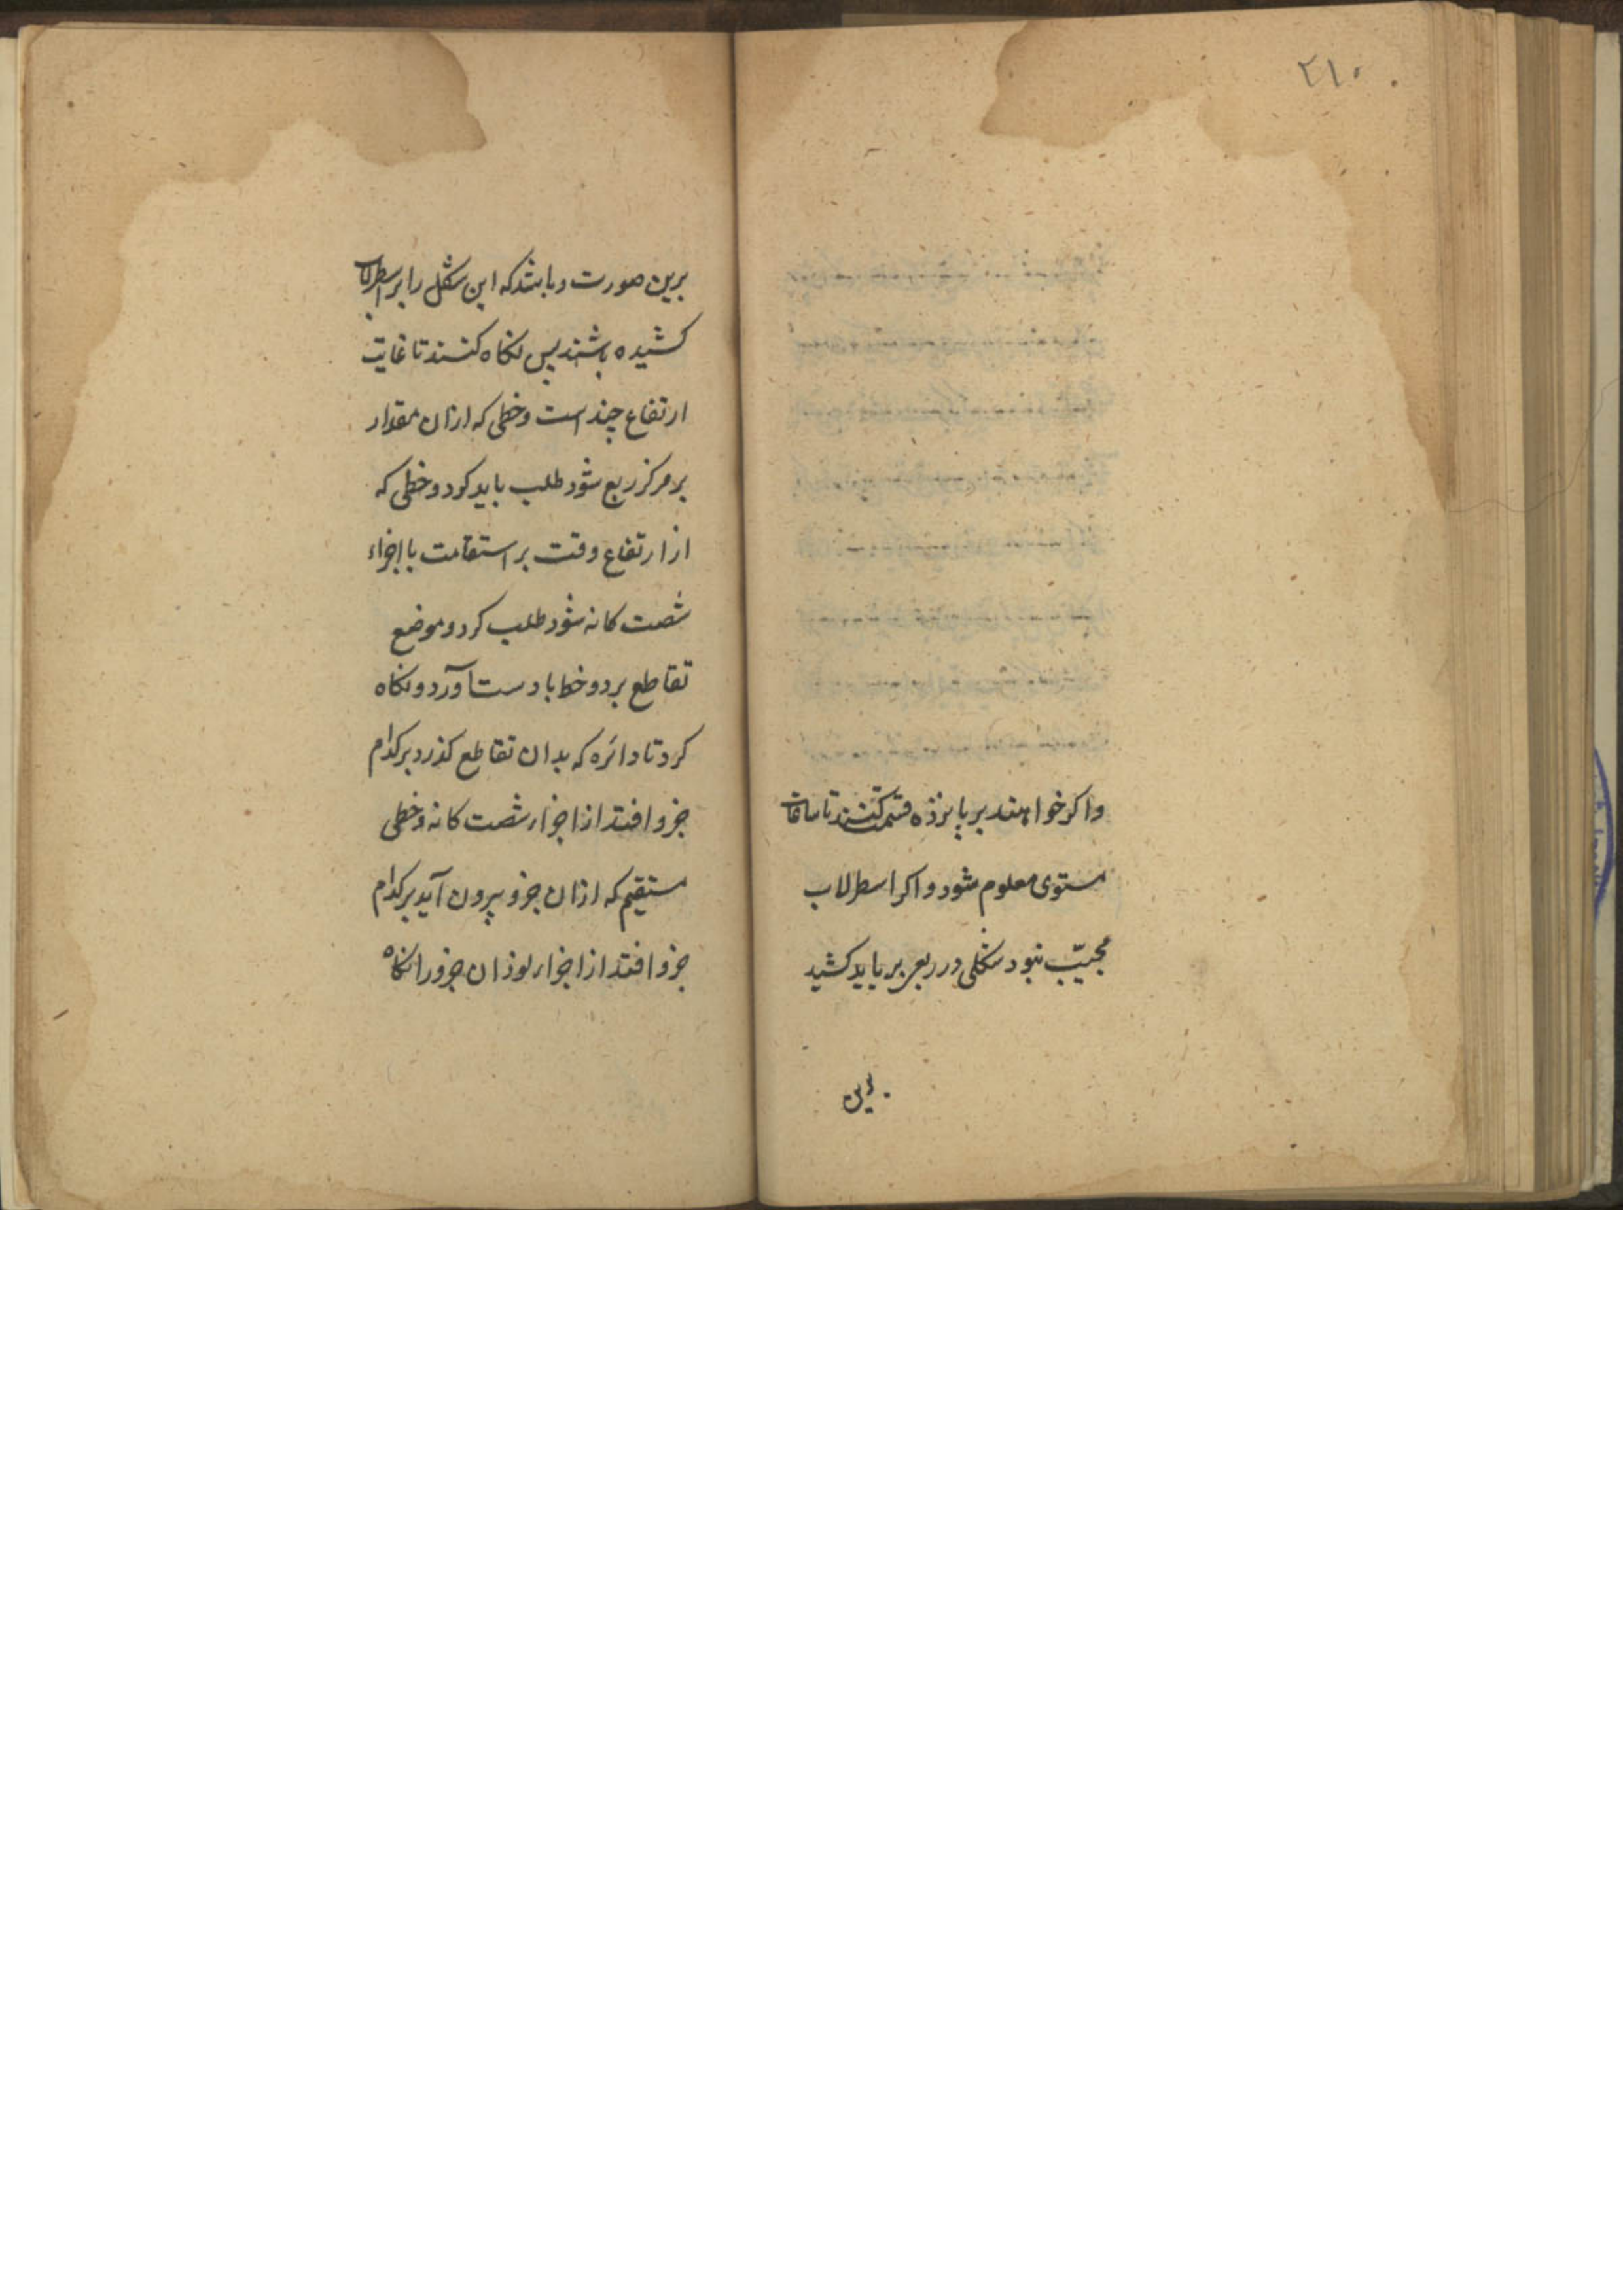 ۲۱۰
واکر خواهند بر پانزده قسمت کنند تا ساعات
مستوی معلوم شود و اکر اسطرلاب
مجیّب نبود شکلی در ربعی بر باید کشید
برین
برین صورت و باشد که این شکل را بر اسطرلاب
کشیده باشند پس نکاه کنند تا غایت
ارتفاع چند است و خطی که ازان مقدار
بر مرکز ربع شود طلب باید کرد و خطی که
از ارتفاع وقت بر استقامت با اجزاء
شصت کانه شود طلب کرد و موضع
تقاطع بر دو خط با دست آورد و نکاه
کرد تا دائره که بدان تقاطع کذرد بر کدام
جزو افتد از اجزاء شصت کانه و خطی
مستقیم که ازان جزو بیرون آید بر کدام
جزو افتد از اجزاء نوذ ان جزو را نکاه